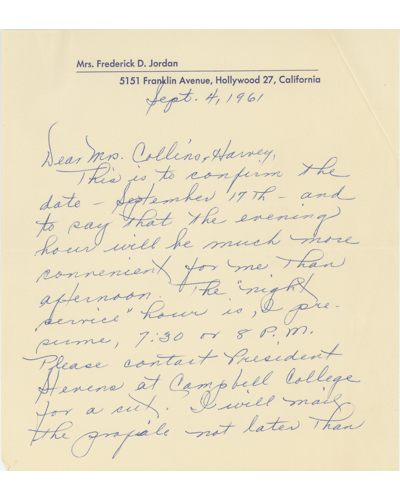 Mrs. Frederick D. Jordan
5151 Franklin Avenue, Hollywood 27, California
Sept. 4, 1961
Dear Mrs. Collins-Harvey,
This is to confirm the
date - September 17th - and
to say that the evening
hour will be much more
convenient for me than
afternoon. The "night
service" hour is, I pre-
sume, 7:30 or 8 P.M.
Please contact President
Stevens at Campbell College
for a cut. I will mail
the profile not later than